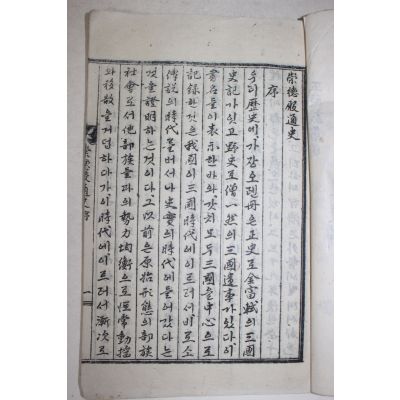 崇德殿通史
序
우리歷史에가장오랜冊은正史로金富軾의三國
史記가잇고野史로僧一然의三國遺事가잇다이
書名들이表示한바와갓치모두三國을中心으로
記錄한것은我國의三國時代에이르러서비로소
傳說의時代를버서나史實의時代에들어갓다는
것을證明하는것이다그以前은原始形態의部族
社會로서他部族들과의勢力均衡으로恒常動搖
와後散을거듭하다가이時代에이르러서漸次로
崇德殿通史序
一